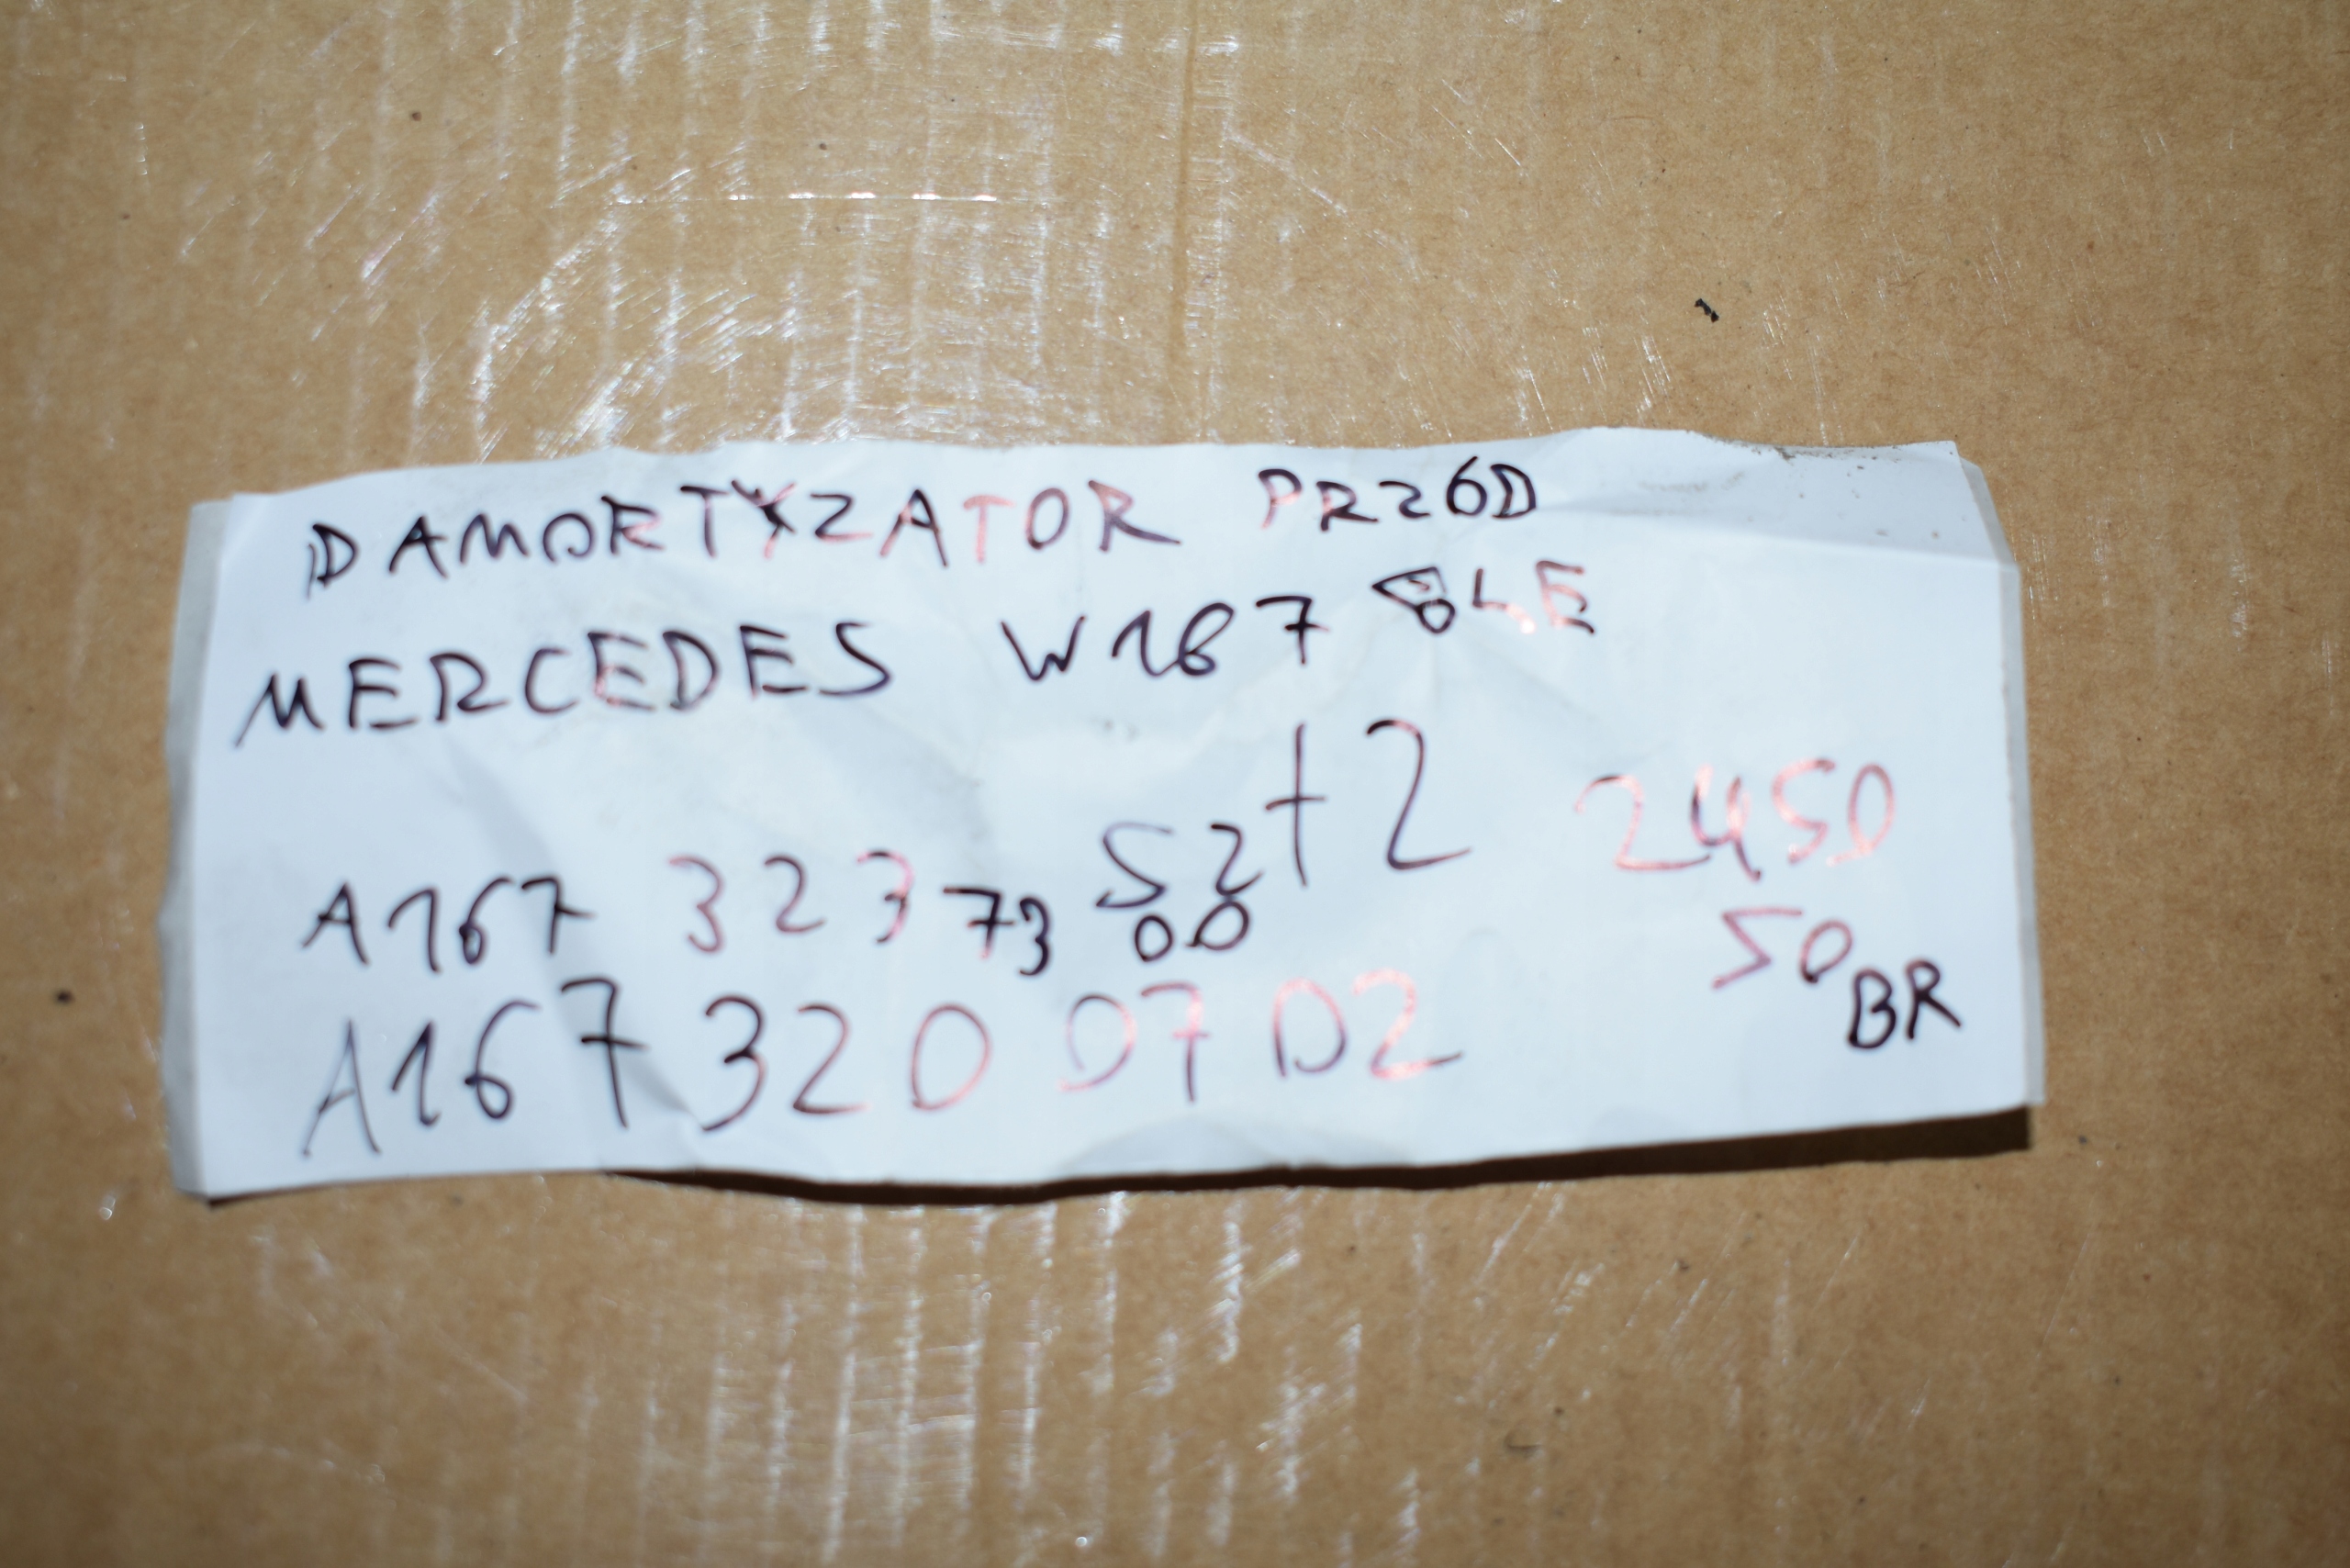 DAMORTYZATOR PRZÓD
MERCEDES W167 GLE
+2 2450
A167 323 73 52 50
00 BR
A167 320 07 02